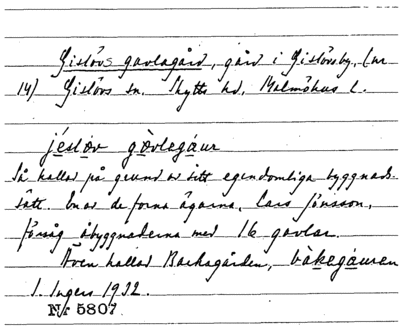 Gislövs gavlagård, gård i Gislövsby, (nr
14) Gislövs sn. Skytts hd, Malmöhus l.
jéslöv gàvlegáur
Så kallad på grund av sitt egendomliga byggnads-
sätt. En av de forna ägarna, Lars Jönsson,
försåg åbyggnaderna med 16 gavlar.
Även kallad Backagården, bàkegáuren
I. Ingers 1932.
Nr 5807